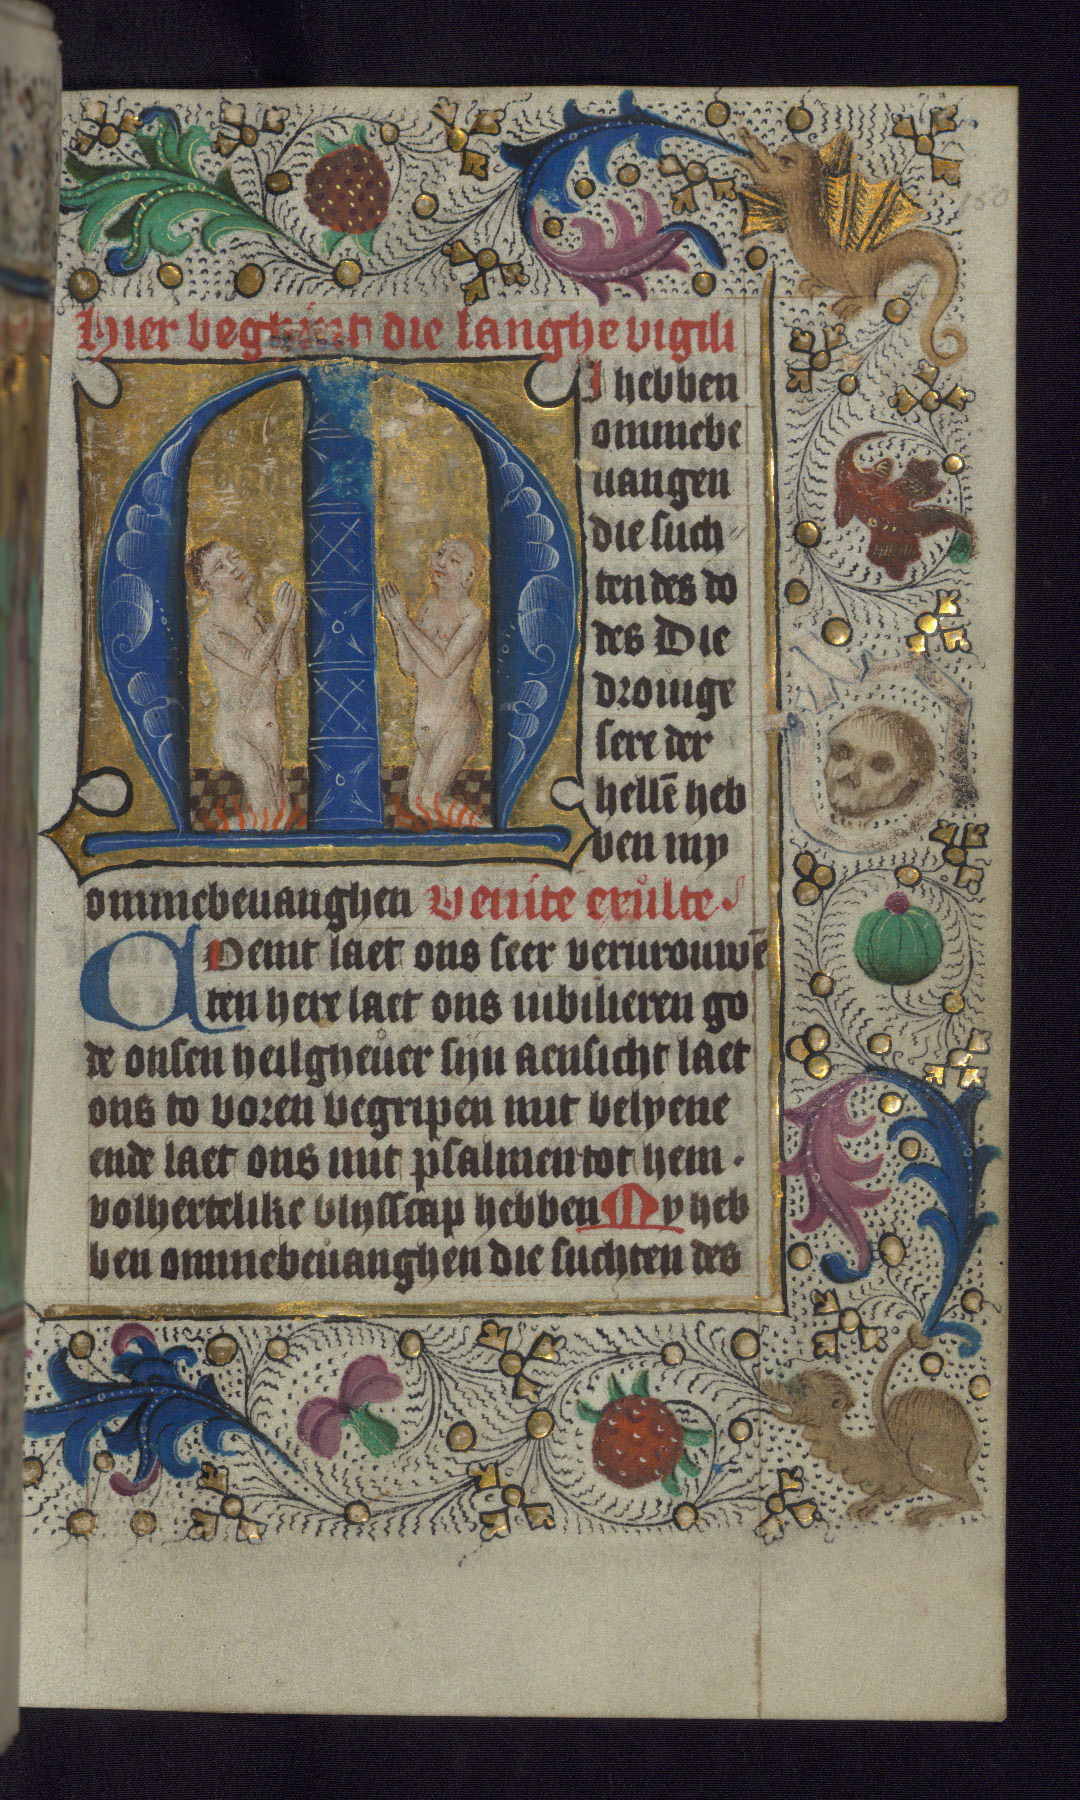 150
hier beghint die langhe vigili
MI hebben
ommebe
uangen
die such
ten des do
des Die
drouige
sere der
hellē heb
ben my
ommebeuanghen Venite exulte.
COemt laet ons seer verurouwē
den here laet ons iubilieren go
de onsen heilgheuer sijn aensicht laet
ons to voren begripen mit belyene
ende laet ons mit psalmen tot hem.
volhertelike blijsscap hebben My heb
ben ommebeuanghen die suchten des